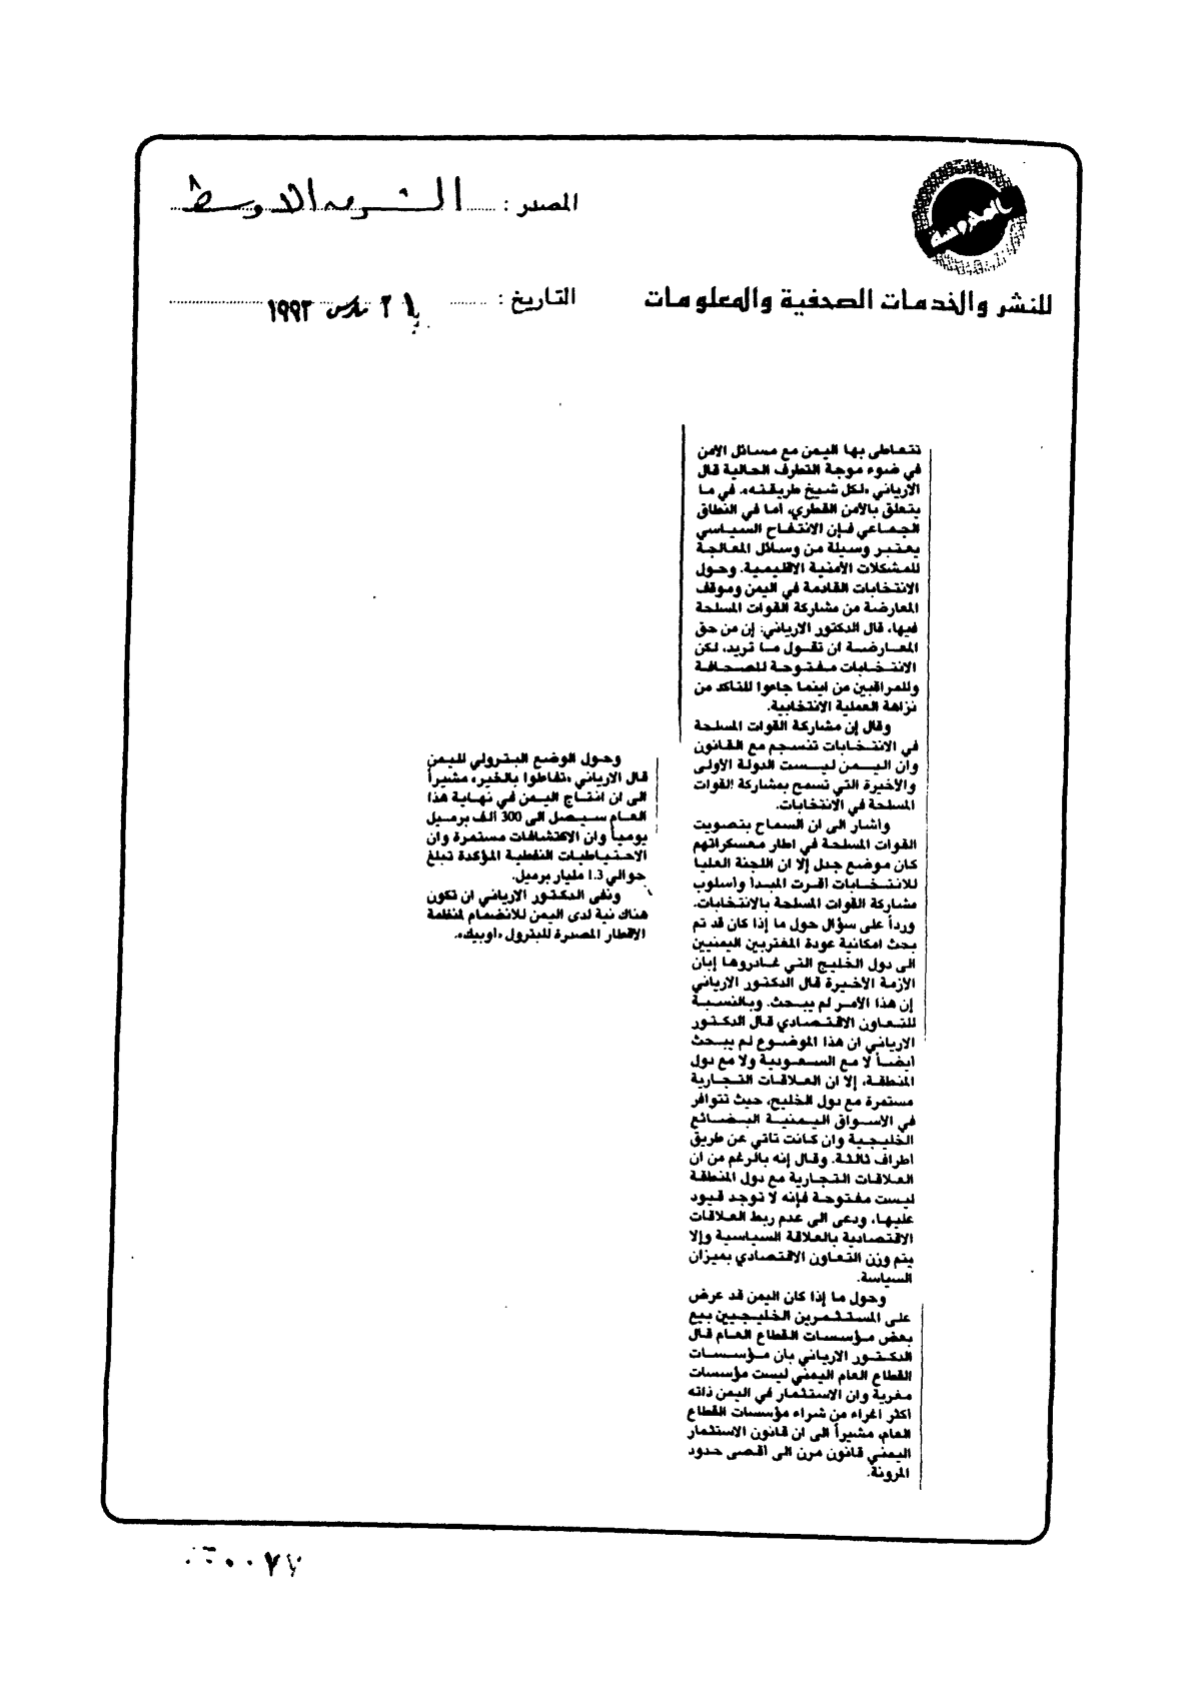 المصدر : الشرق الاوسط
المحروسة
للنشر والخدمات الصحفية والمعلومات
التاريخ : ٢١ مارس ١٩٩٣
تتعاطى بها اليمن مع مسائل الأمن
في ضوء موجة التطرف الحالية قال
الارياني «لكل شيخ طريقته»، في ما
يتعلق بالأمن القطري، أما في النطاق
الجماعي فإن الانفتاح السياسي
يعتبر وسيلة من وسائل المعالجة
للمشكلات الأمنية الاقليمية. وحول
الانتخابات القادمة في اليمن وموقف
المعارضة من مشاركة القوات المسلحة
فيها، قال الدكتور الارياني: إن من حق
المعارضة ان تقول ما تريد، لكن
الانتخابات مفتوحة للصحافة
وللمراقبين من اينما جاءوا للتاكد من
نزاهة العملية الانتخابية.
وقال إن مشاركة القوات المسلحة
في الانتخابات تنسجم مع القانون
وان اليمن ليست الدولة الأولى
والأخيرة التي تسمح بمشاركة القوات
المسلحة في الانتخابات.
وأشار الى ان السماح بتصويت
القوات المسلحة في اطار معسكراتهم
كان موضع جدل إلا ان اللجنة العليا
للانتخابات أقرت المبدأ وأسلوب
مشاركة القوات المسلحة بالانتخابات.
ورداً على سؤال حول ما إذا كان قد تم
بحث امكانية عودة المغتربين اليمنيين
الى دول الخليج التي غادروها إبان
الأزمة الأخيرة قال الدكتور الارياني
إن هذا الأمر لم يبحث. وبالنسبة
للتعاون الاقتصادي قال الدكتور
الارياني ان هذا الموضوع لم يبحث
ايضاً لا مع السعودية ولا مع دول
المنطقة، إلا ان العلاقات التجارية
مستمرة مع دول الخليج، حيث تتوافر
في الأسواق اليمنية البضائع
الخليجية وان كانت تاتي عن طريق
اطراف ثالثة. وقال إنه بالرغم من ان
العلاقات التجارية مع دول المنطقة
ليست مفتوحة فإنه لا توجد قيود
عليها، ودعى الى عدم ربط العلاقات
الاقتصادية بالعلاقة السياسية وإلا
يتم وزن التعاون الاقتصادي بميزان
السياسة.
وحول ما إذا كان اليمن قد عرض
على المستثمرين الخليجيين بيع
بعض مؤسسات القطاع العام قال
الدكتور الارياني بان مؤسسات
القطاع العام اليمني ليست مؤسسات
مغرية وان الاستثمار في اليمن ذاته
اكثر اغراء من شراء مؤسسات القطاع
العام، مشيراً الى ان قانون الاستثمار
اليمني قانون مرن الى أقصى حدود
المرونة.
وحول الوضع البترولي لليمن
قال الارياني «تفاءلوا بالخير» مشيراً
الى ان انتاج اليمن في نهاية هذا
العام سيصل الى 300 الف برميل
يومياً وان الاكتشافات مستمرة وان
الاحتياطيات النفطية المؤكدة تبلغ
حوالي 1.3 مليار برميل.
ونفى الدكتور الارياني ان تكون
هناك نية لدى اليمن للانضمام لمنظمة
الاقطار المصدرة للبترول «اوبيك».